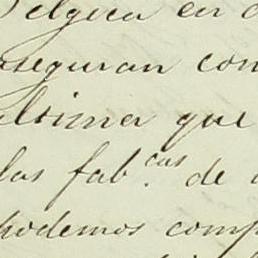 Belgica en
aseguran con
ultima que
las fab.cas de
podemos comp